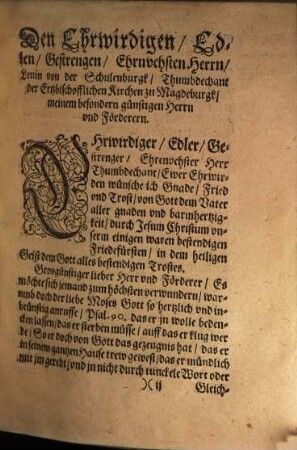 Den Ehrwirdigen / Ed-
len / Gestrengen / Ehrnvehsten Herrn /
Levin von der Schulenburgk / Thumbdechant
der Ertzbischofflichen Kirchen zu Magdeburgk /
meinem besondern günstigen Herrn
und Förderern.
EHrwirdiger / Edler / Ge-
strenger / Ehrenvehster Herr
Thumbdechant / Ewer Ehrwir-
den wünsche ich Gnade / Fried
und Trost / von Gott dem Vater
aller gnaden und barmhertzig-
keit / durch Jesum Christum un-
serm einigen waren bestendigen
Friedefürsten / in dem heiligen
Geist dem Gott alles bestendigen Trostes.
Grosgünstiger lieber Herr und Förderer / Es
möchte sich jemand zum höchsten verwundern / war-
umb doch der liebe Moses Gott so hertzlich und in-
brünstig anruffe / Psal. 90. das er jn wolle beden-
cken lassen / das er sterben müsse / auff das er klug wer-
de / So er doch von Gott das gezeugnis hat / das er
in seinem gantzen Hause trew gewest / das er mündlich
mit jm geredt / und jn nicht durch tunckele Wort oder
)( ij Gleich-